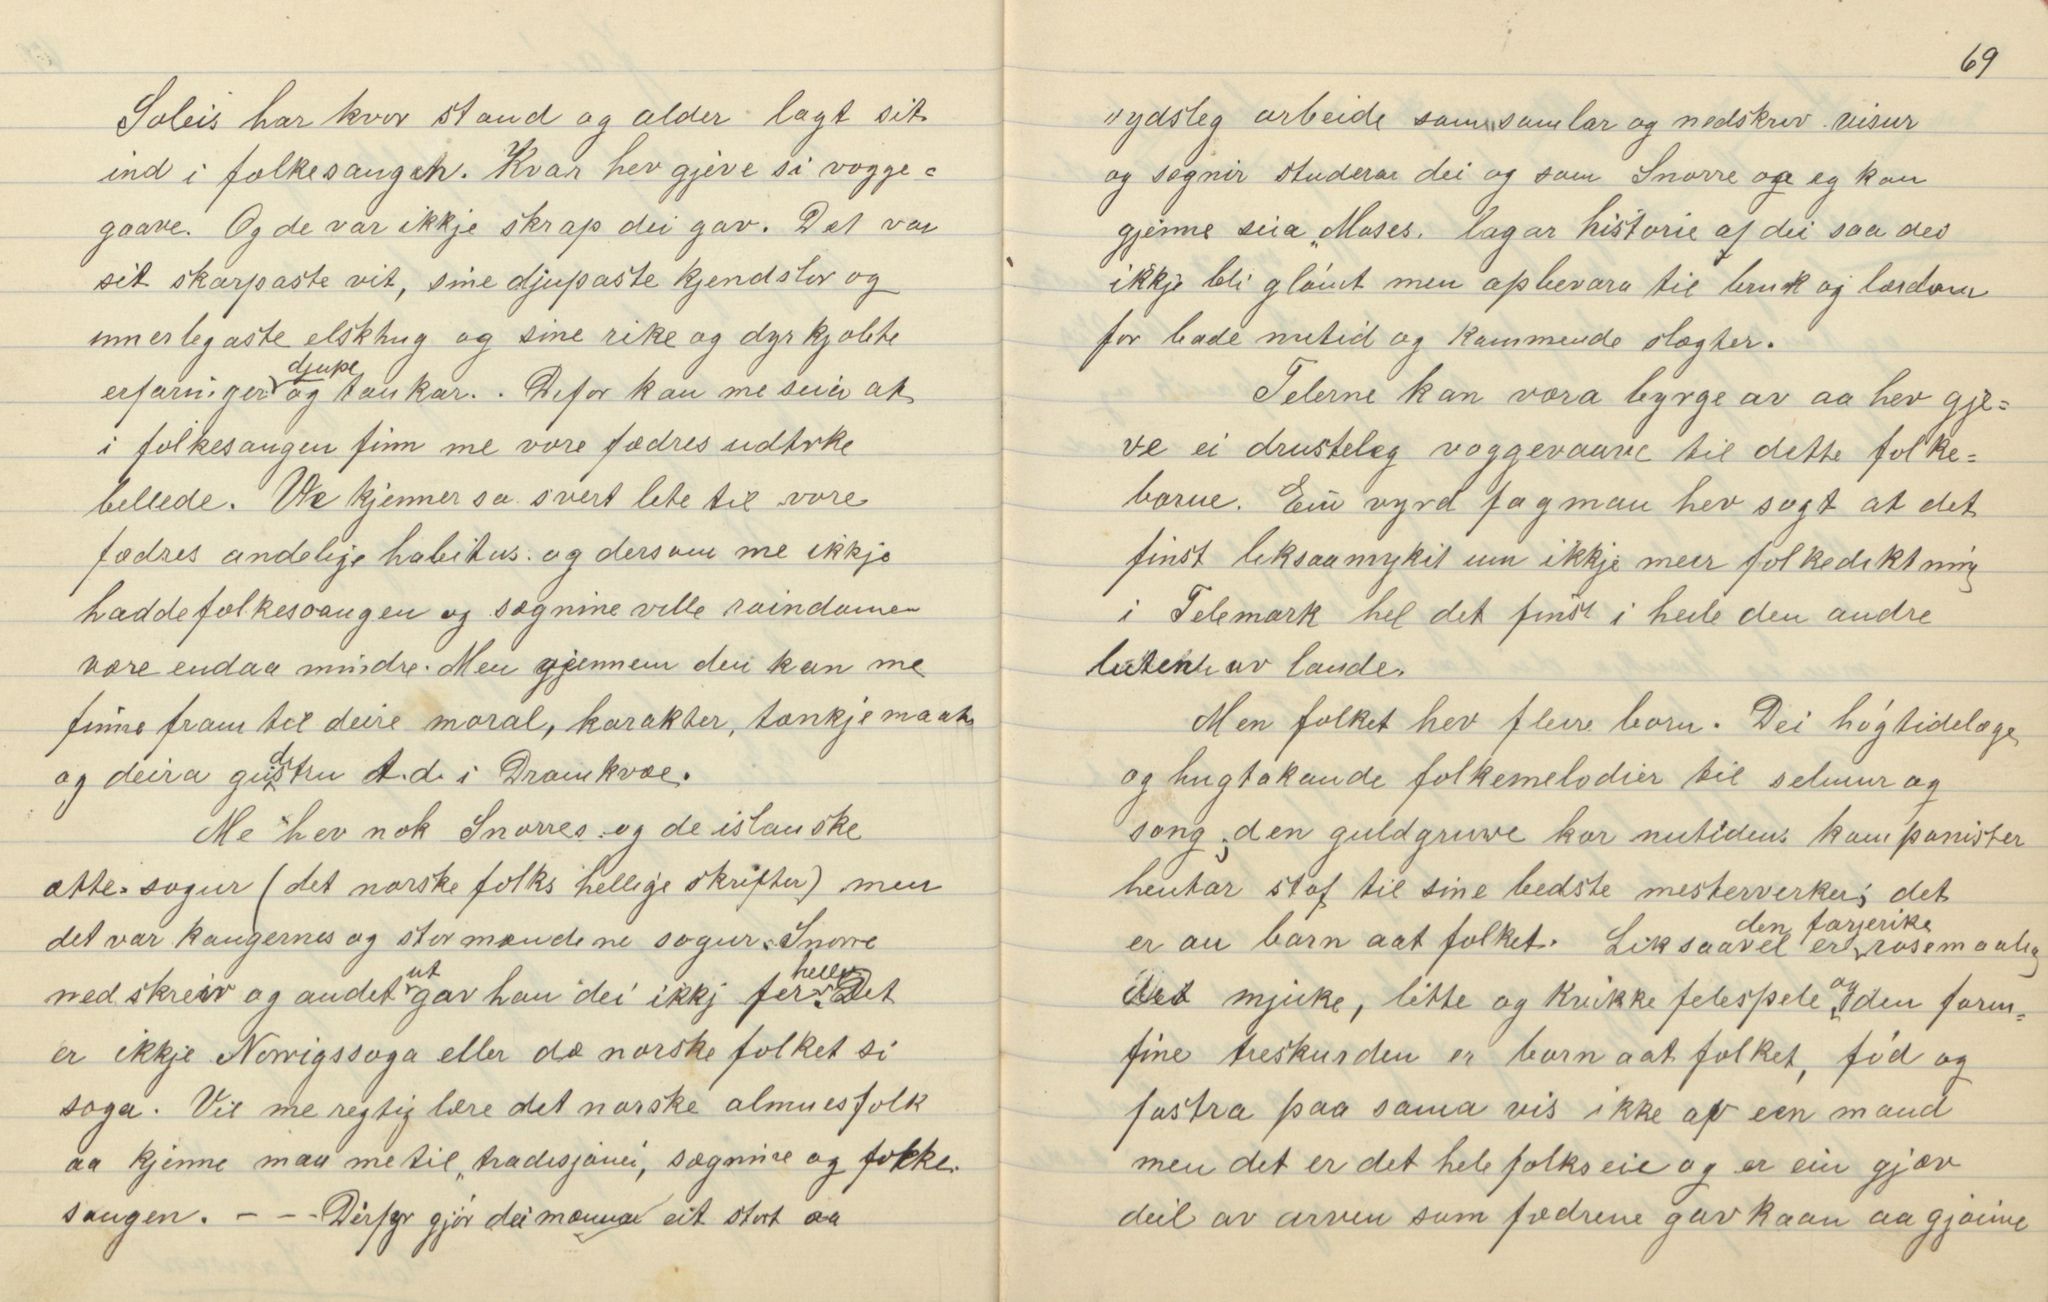 Soleis har kvor stand og alder lagt sit
ind i folkesangen. Kvar hev gjeve si vogge=
gaave. Og de var ikkje skrap dei gav. Det var
sit skarpaste vit, sine djupaste kjendslor og
innerlegaste elskhug og sine rike og dyrkjøbte
erfaringer og djupe tankar. . Defor kan me seia at
i folkesangen finn me vore fædres udtrke
bellede. We kjenner sa svert lete til vore
fædres andelige habitus. og dersom me ikkje
hadde folkesaangen og sægnine ville raindomen
være endaa mindre. Men gjennem dei kan me
finne fram til deire moral, karakter, tænkjemaate
og deira t.d. i Draumkvæe.
Me hev nok Snorres og de islanske
ætte-sogur (det norske folks hellige skrifter) men
det var kongernes og stormændene sogur. Snorre
nedskreiv og andet ut gav han dei ikkj for heller. Det
er ikkje Norrigssoga eller dæ norske folket si
soga. Vil me regtig lære det norske almuesfolk
aa kjenne maa me til „tradisjonei, sægnine og folke-
sangen. - - - Derfyr gjør dei mænnar eit stort aa
69
„ydsleg arbeide som samlar og nedskriv visur
og sægnir studerar dei og som Snorre oge eg kan
gjenne seia „Moses. lagar historie af dei saa des
ikkje bli glømt men opbevara til bruk og lærdom
for bade nutid og kommende slægter.
Telerne kan væra byrge av aa hev gje=
ve ei drusteleg voggevaave til dette folke=
barne. Ein vyrd fagman hev sagt at det
finst liksaamykit um ikkje meir folkediktning
i Telemark hel det finst i heile den andre
luten av lande.
Men folket hev fleire born. Dei høgtidelæge
og hugtakande folkemelodier til selmur og
song, den guldgruve kor nutidens kamponister
hentar stof til sine bedste mesterverker; det
er au barn aat folket. Liksaavel er den farjerike rosemaaling
det mjuke, lette og kvikke felespele og den form=
fine treskurden er born aat folket, fød og
fostra paa sama vis ikke af een mand
men det er det hele folks eie og er ein gjæv
deil av arven som fædrene gav kaan aa gjøime